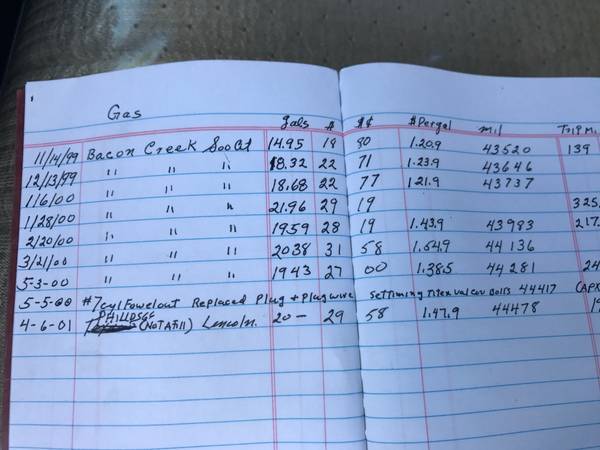 Gas
gals # $¢ $Pergal mil Trip M.
11/14/99 Bacon Creek Soo Cit 14.95 18 80 1.20.9 43520 139
12/13/99 " " " 18.32 22 71 1.23.9 43646
1/6/00 " " " 18.68 22 77 121.9 43737
1/28/00 " " " 21.96 29 19 325.
2/20/00 " " " 1959 28 19 1.43.9 43983 217.
3/21/00 " " " 2038 31 58 1.54.9 44136
5-3-00 " " " 1943 27 00 1.38.5 44281 24
5-5-00 #7 cyl Fowel out Replaced Plug + Plug wire Set Timing Titen val cov Bolts 44417 (APX
4-6-01 (NOT A Fill) Lincoln. 20- 29 58 1.47.9 44478 19